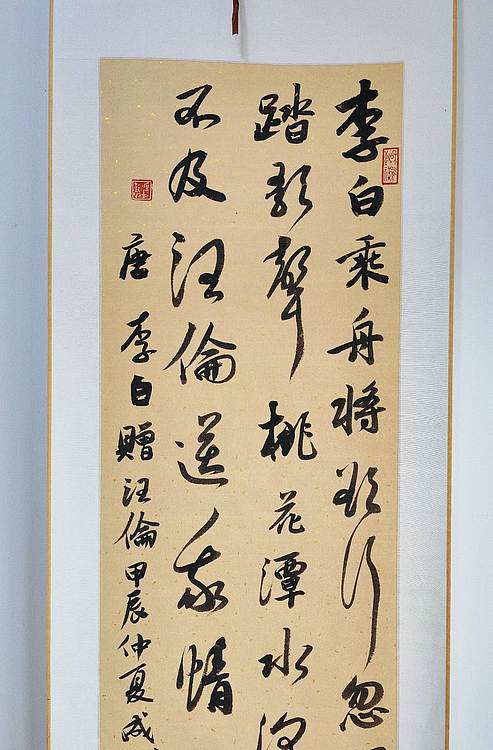 李白乘舟將欲行忽
踏歌聲桃花潭水深
不及汪倫送我情
唐李白贈汪倫甲辰仲夏成